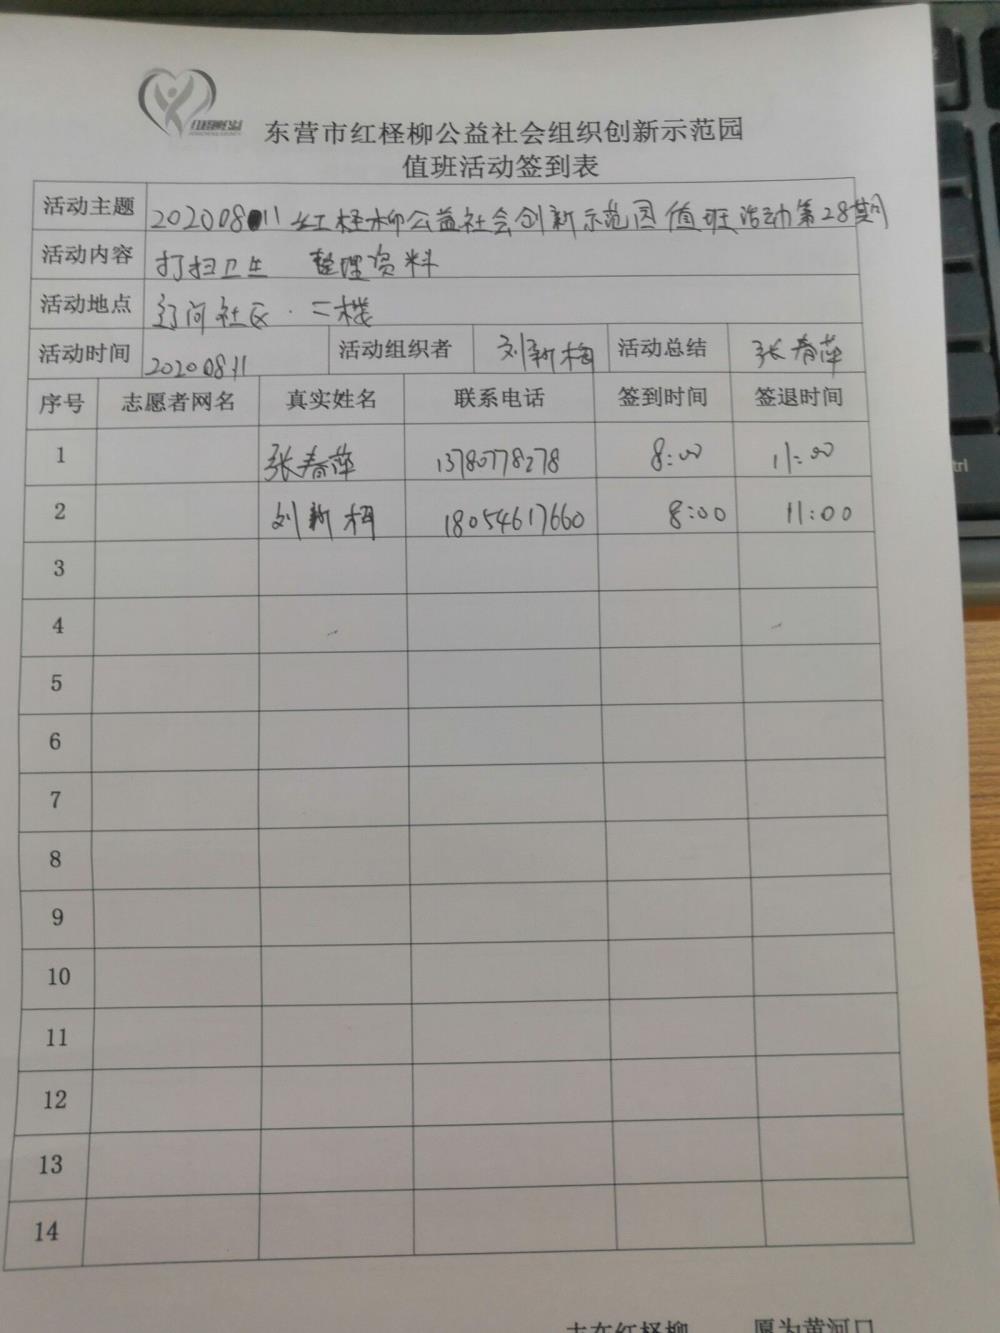 东营市红柽柳公益社会组织创新示范园
值班活动签到表
活动主题 20200811 红柽柳公益社会创新示范园值班活动第28期
活动内容 打扫卫生 整理资料
活动地点 辽河社区·二楼
活动时间 20200811 活动组织者 刘新梅 活动总结 张春萍
序号 志愿者网名 真实姓名 联系电话 签到时间 签退时间
1 张春萍 13780778278 8:00 11:00
2 刘新梅 18054617660 8:00 11:00
3
4
5
6
7
8
9
10
11
12
13
14
志在红柽柳 愿为黄河口